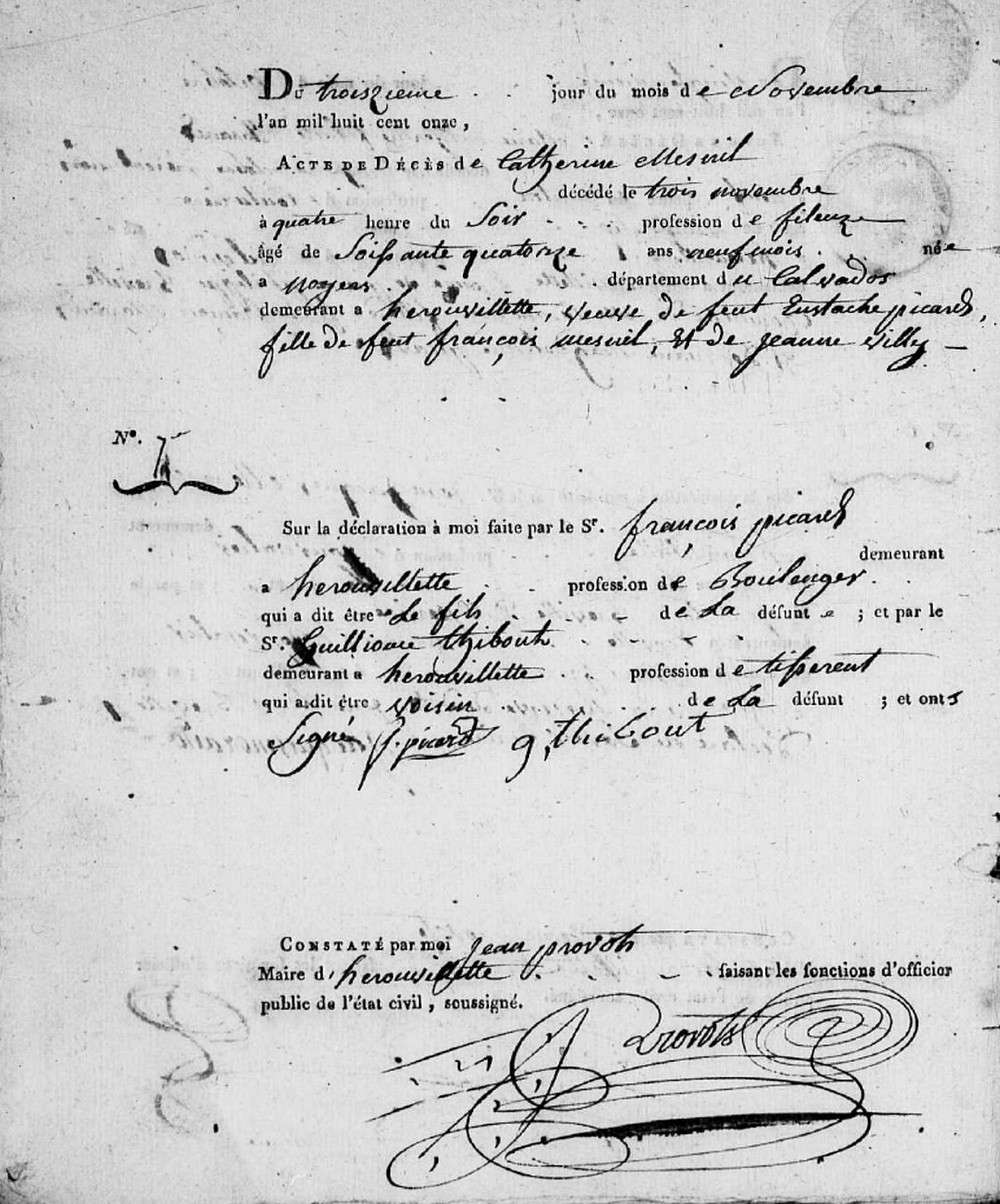 Du troiszieme jour du mois de Novembre
l'an mil huit cent onze,
ACTE DE DÉCÈS de Catherine Mesnil
décédé le trois novembre
à quatre heure du Soir profession de fileuze
âgé de Soissante quatorze ans neuf mois née
a noyers département du Calvados
demeurant a herouvillette, veuve de feut Eustache picard,
fille de feut françois mesnil, Et de jeanne Villy
N°. 7
Sur la déclaration à moi faite par le Sr. françois picard
demeurant
a herouvillette profession de Boulenger
qui a dit être Le fils de La défunte ; et par le
Sr. Guilliaume thibout
demeurant a herouvillette profession de tisserent
qui a dit être voisin de La défunt ; et onts
Signé f. picard g. thibout
CONSTATÉ par moi jean provots
Maire d'herouvillette faisant les fonctions d'officier
public de l'état civil, soussigné.
Provots